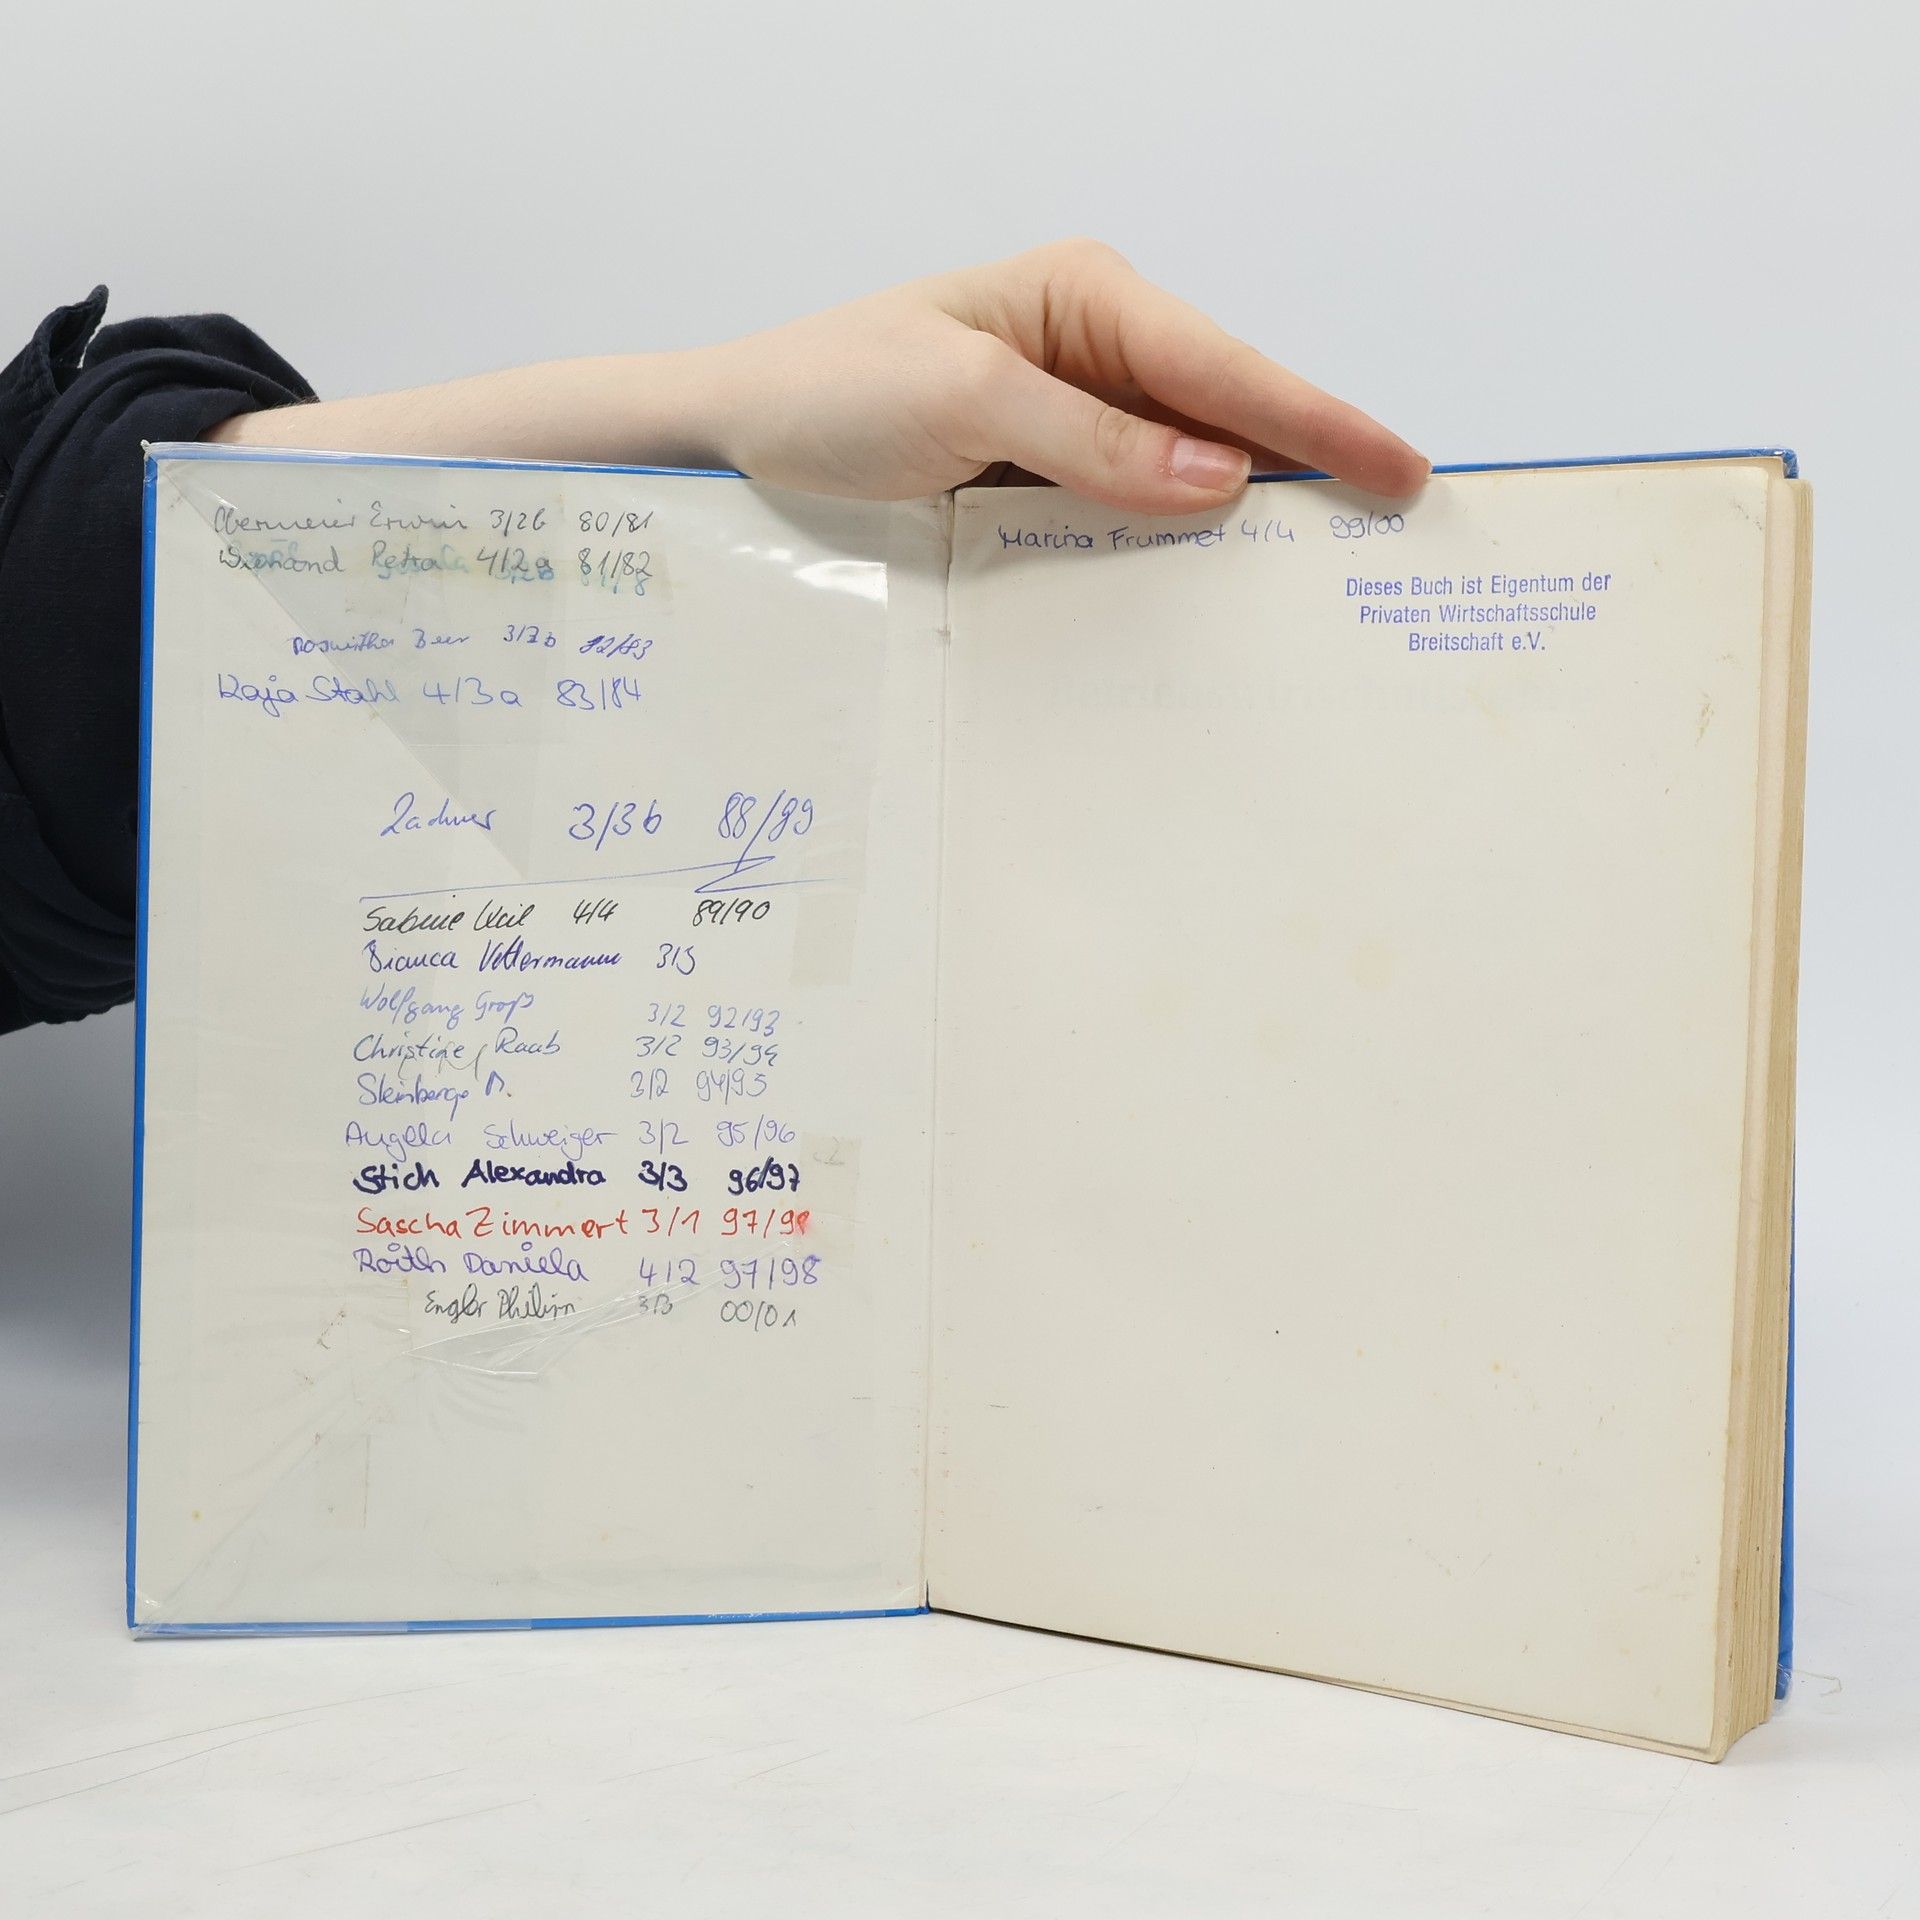 Obermeier Erwin 3/2b 80/81
Petra 4/2a 81/82
Roswitha Beer 3/3b 82/83
Kaja Stahl 4/3a 83/84
3/3b 88/89
Sabine Keil 4/4 89/90
Bianca Vettermann 3/3
Wolfgang Groß 3/2 92/93
Christine Raab 3/2 93/94
3/2 94/95
Angela Schweiger 3/2 95/96
Stich Alexandra 3/3 96/97
Sascha Zimmert 3/1 97/98
Roith Daniela 4/2 97/98
Engler Philipp 3/3 00/01
Marina Frummet 4/4 99/00
Dieses Buch ist Eigentum der
Privaten Wirtschaftsschule
Breitschaft e.V.